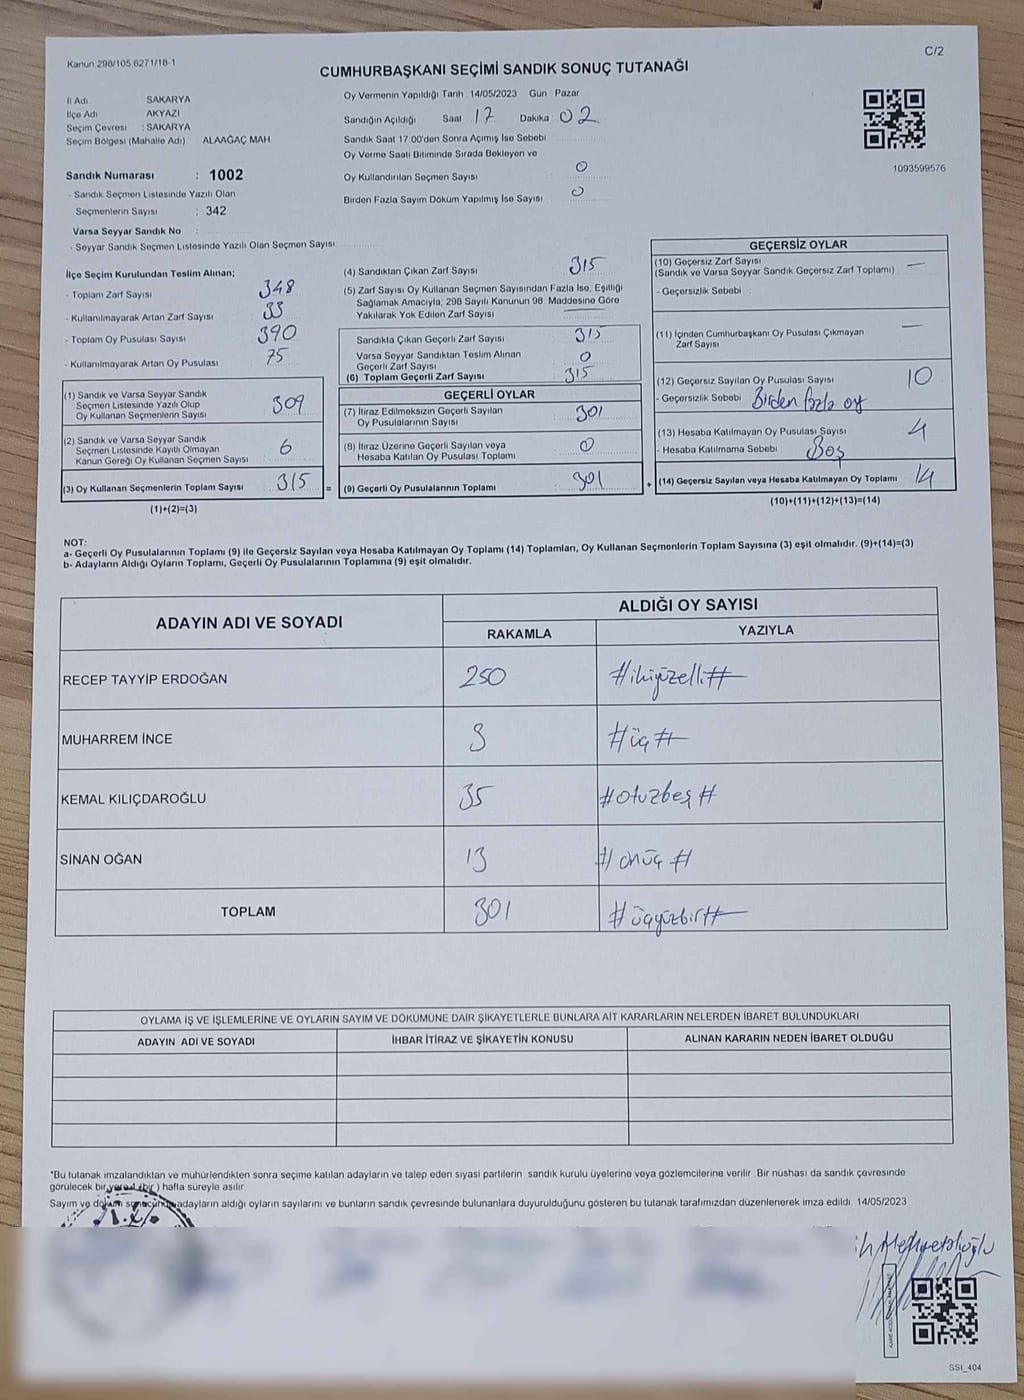 Kanun 298/105,6271/18-1
C/2
CUMHURBAŞKANI SEÇİMİ SANDIK SONUÇ TUTANAĞI
İl Adı SAKARYA
İlçe Adı AKYAZI
Seçim Çevresi : SAKARYA
Seçim Bölgesi (Mahalle Adı) ALAAĞAÇ MAH
Oy Vermenin Yapıldığı Tarih 14/05/2023 Gün Pazar
Sandığın Açıldığı Saat 17 Dakika 02
Sandık Saat 17:00'den Sonra Açılmış İse Sebebi
Oy Verme Saati Bitiminde Sırada Bekleyen ve
Oy Kullandırılan Seçmen Sayısı 0
Birden Fazla Sayım Döküm Yapılmış İse Sayısı 0
1093599576
Sandık Numarası : 1002
- Sandık Seçmen Listesinde Yazılı Olan
Seçmenlerin Sayısı : 342
Varsa Seyyar Sandık No :
- Seyyar Sandık Seçmen Listesinde Yazılı Olan Seçmen Sayısı
İlçe Seçim Kurulundan Teslim Alınan;
- Toplam Zarf Sayısı 348
- Kullanılmayarak Artan Zarf Sayısı 33
- Toplam Oy Pusulası Sayısı 390
- Kullanılmayarak Artan Oy Pusulası 75
(1) Sandık ve Varsa Seyyar Sandık
Seçmen Listesinde Yazılı Olup
Oy Kullanan Seçmenlerin Sayısı 309
(2) Sandık ve Varsa Seyyar Sandık
Seçmen Listesinde Kayıtlı Olmayan
Kanun Gereği Oy Kullanan Seçmen Sayısı 6
(3) Oy Kullanan Seçmenlerin Toplam Sayısı 315 =
(1)+(2)=(3)
(4) Sandıktan Çıkan Zarf Sayısı 315
(5) Zarf Sayısı Oy Kullanan Seçmen Sayısından Fazla İse, Eşitliği
Sağlamak Amacıyla, 298 Sayılı Kanunun 98. Maddesine Göre
Yakılarak Yok Edilen Zarf Sayısı —
Sandıkta Çıkan Geçerli Zarf Sayısı 315
Varsa Seyyar Sandıktan Teslim Alınan
Geçerli Zarf Sayısı 0
(6) Toplam Geçerli Zarf Sayısı 315
GEÇERLİ OYLAR
(7) İtiraz Edilmeksizin Geçerli Sayılan
Oy Pusulalarının Sayısı 301
(8) İtiraz Üzerine Geçerli Sayılan veya
Hesaba Katılan Oy Pusulası Toplamı 0
(9) Geçerli Oy Pusulalarının Toplamı 301 +
GEÇERSİZ OYLAR
(10) Geçersiz Zarf Sayısı
(Sandık ve Varsa Seyyar Sandık Geçersiz Zarf Toplamı) —
- Geçersizlik Sebebi
(11) İçinden Cumhurbaşkanı Oy Pusulası Çıkmayan
Zarf Sayısı —
(12) Geçersiz Sayılan Oy Pusulası Sayısı 10
- Geçersizlik Sebebi Birden fazla oy
(13) Hesaba Katılmayan Oy Pusulası Sayısı 4
- Hesaba Katılmama Sebebi Boş
(14) Geçersiz Sayılan veya Hesaba Katılmayan Oy Toplamı 14
(10)+(11)+(12)+(13)=(14)
NOT:
a- Geçerli Oy Pusulalarının Toplamı (9) ile Geçersiz Sayılan veya Hesaba Katılmayan Oy Toplamı (14) Toplamları, Oy Kullanan Seçmenlerin Toplam Sayısına (3) eşit olmalıdır. (9)+(14)=(3)
b- Adayların Aldığı Oyların Toplamı, Geçerli Oy Pusulalarının Toplamına (9) eşit olmalıdır.
ADAYIN ADI VE SOYADI
ALDIĞI OY SAYISI
RAKAMLA YAZIYLA
RECEP TAYYİP ERDOĞAN 250 #ikiyüzelli#
MUHARREM İNCE 3 #üç#
KEMAL KILIÇDAROĞLU 35 #otuzbeş#
SİNAN OĞAN 13 #onüç#
TOPLAM 301 #üçyüzbir#
OYLAMA İŞ VE İŞLEMLERİNE VE OYLARIN SAYIM VE DÖKÜMÜNE DAİR ŞİKAYETLERLE BUNLARA AİT KARARLARIN NELERDEN İBARET BULUNDUKLARI
ADAYIN ADI VE SOYADI İHBAR İTİRAZ VE ŞİKAYETİN KONUSU ALINAN KARARIN NEDEN İBARET OLDUĞU
*Bu tutanak imzalandıktan ve mühürlendikten sonra seçime katılan adayların ve talep eden siyasi partilerin sandık kurulu üyelerine veya gözlemcilerine verilir. Bir nüshası da sandık çevresinde
görülecek bir yere 1 (bir) hafta süreyle asılır.
Sayım ve döküm sonucunda adayların aldığı oyların sayılarını ve bunların sandık çevresinde bulunanlara duyurulduğunu gösteren bu tutanak tarafımızdan düzenlenerek imza edildi. 14/05/2023
SSI_404